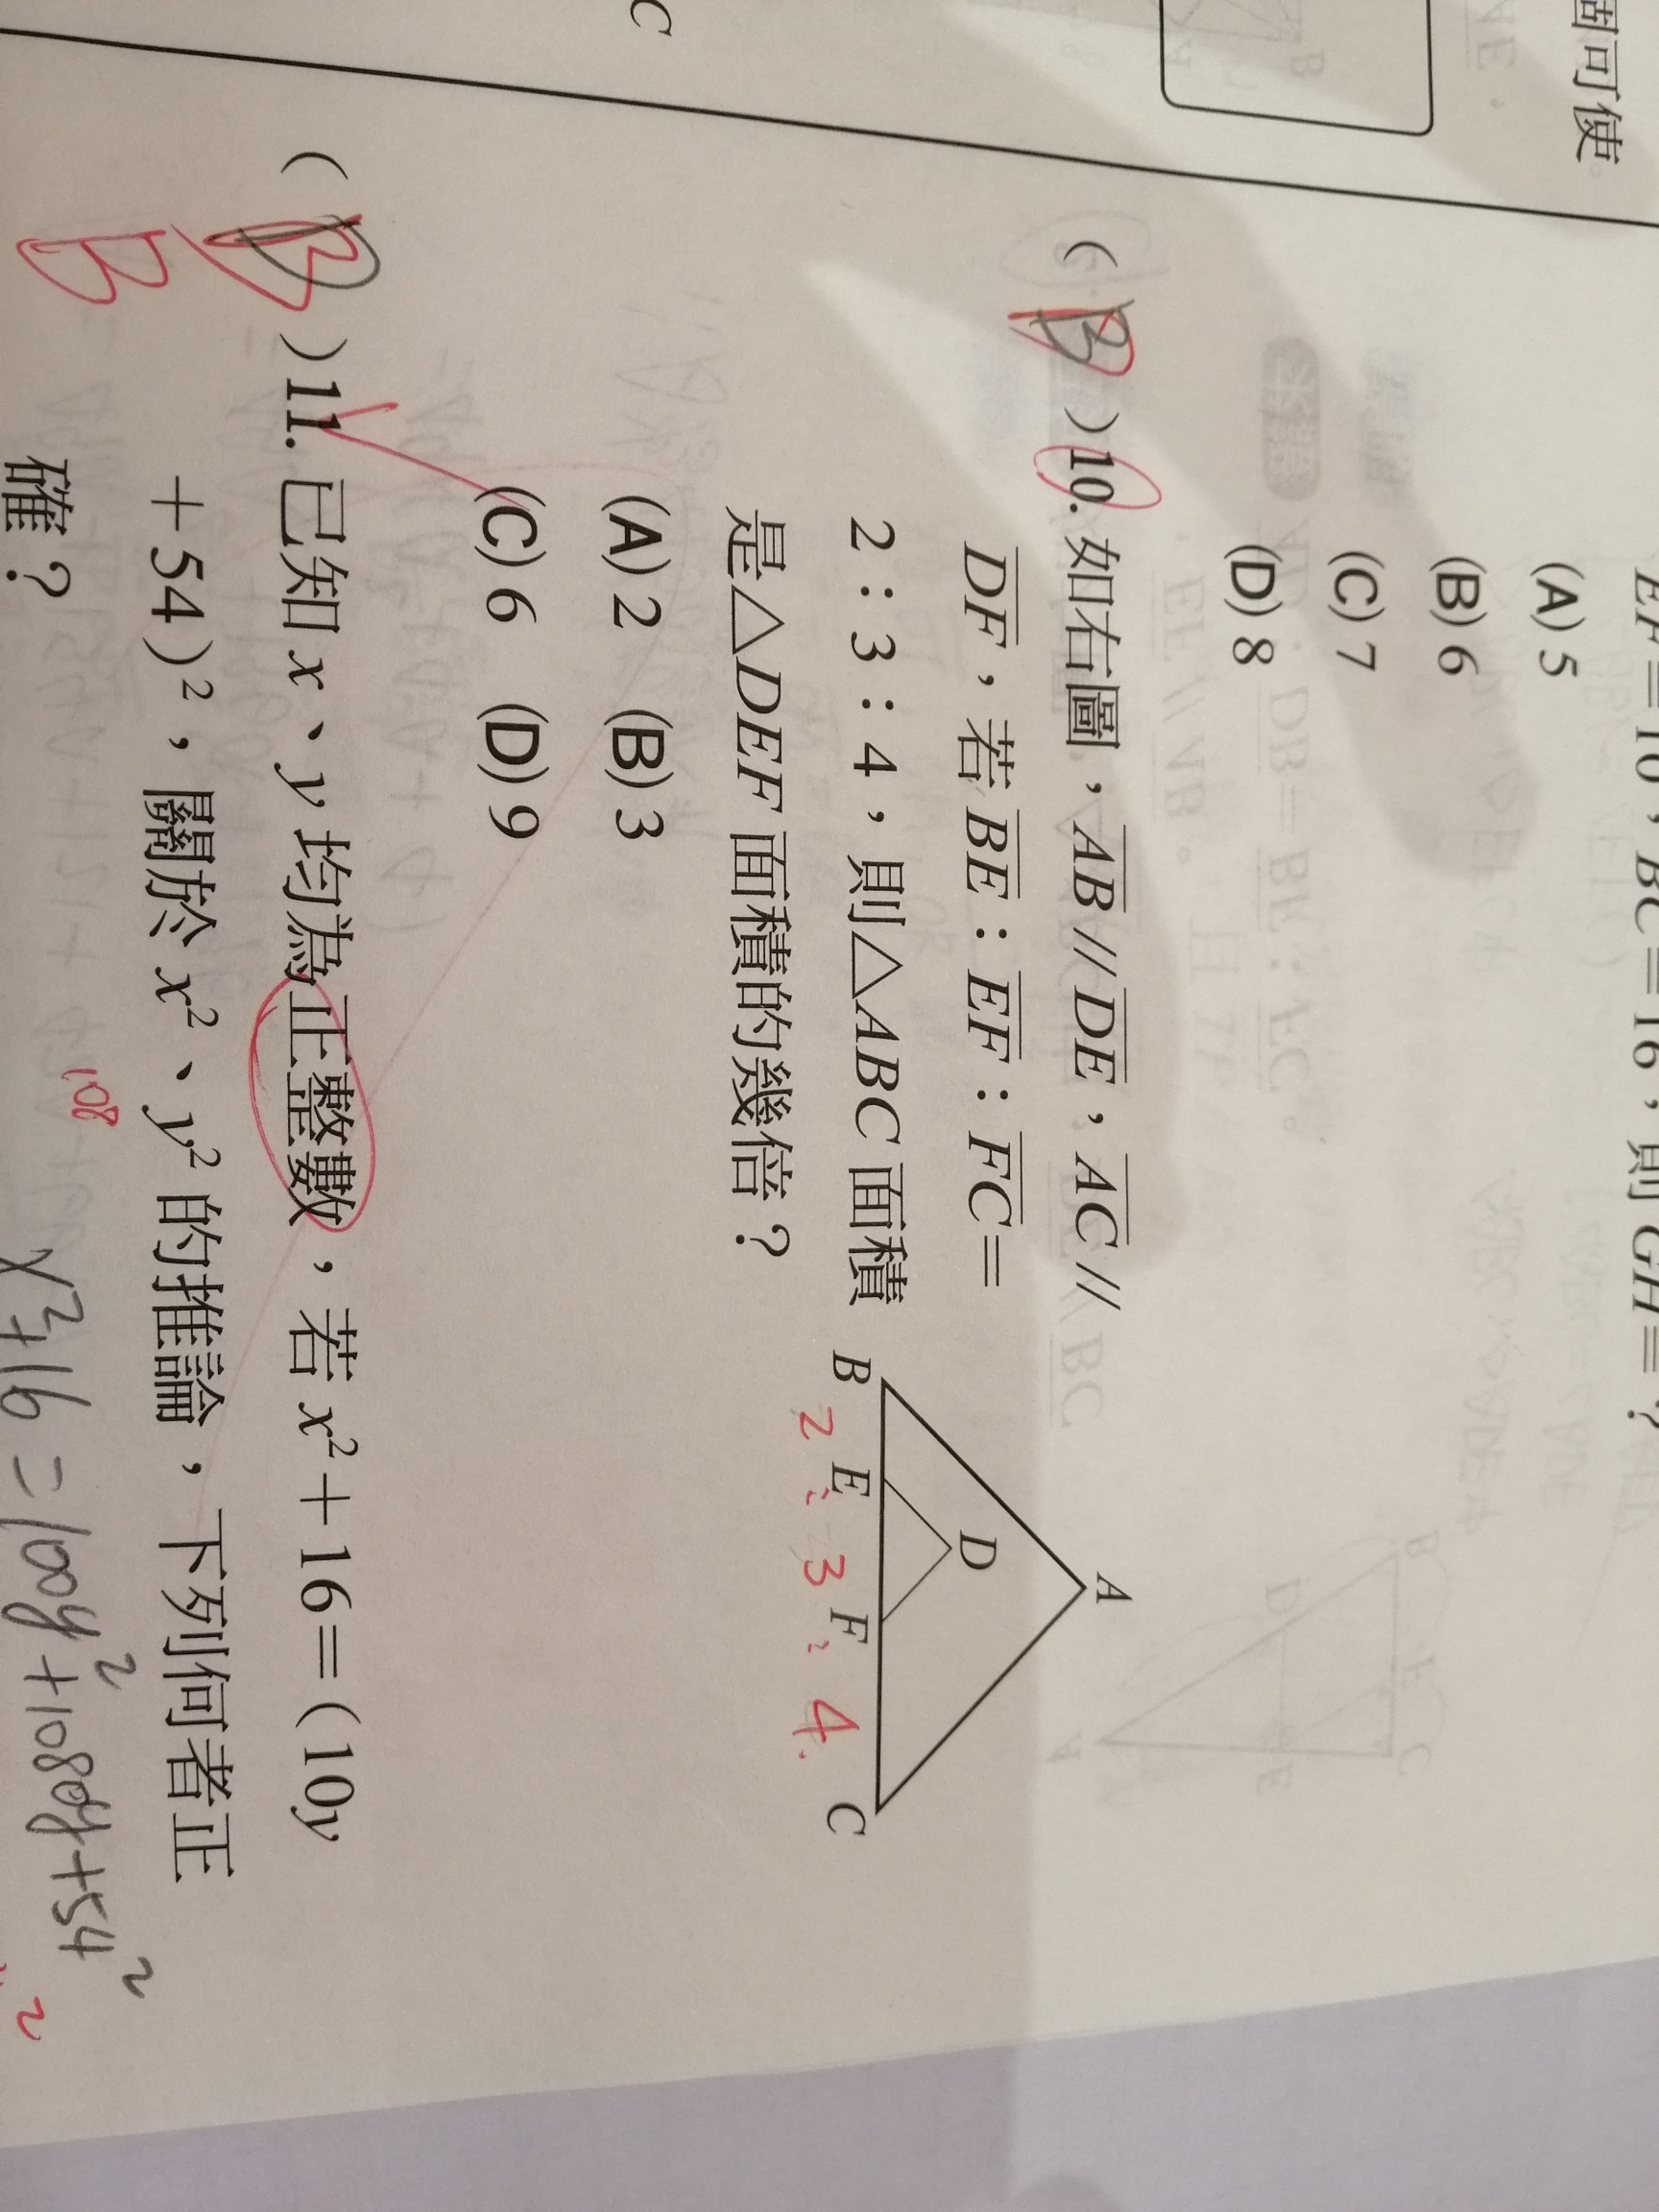 固可使
C
EF=10，BC=16，則 GH=？
(A) 5
(B) 6
(C) 7
(D) 8
( B )10. 如右圖，AB // DE，AC //
DF，若 BE：EF：FC=
2：3：4，則△ABC 面積
是△DEF 面積的幾倍？
(A) 2 (B) 3
(C) 6 (D) 9
A
D
B E F C
2 : 3 : 4
( B )11. 已知 x、y 均為正整數，若 x²+16=(10y
+54)²，關於 x²、y² 的推論，下列何者正
確？
B
108
x²+16=100y²+1080y+54²
2